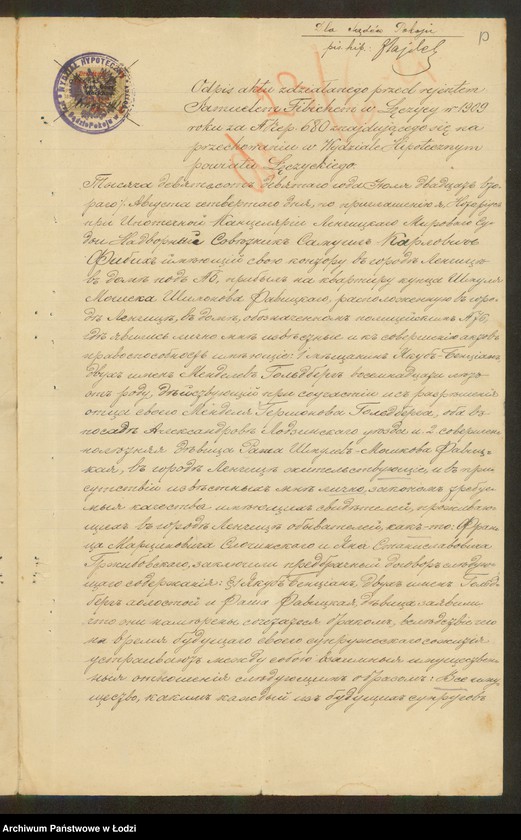 Dla sądu Pokoju
pis. hip.
Odpis aktu zdziałanego przed rejentem
Samuelem Fibichem w Łęczycy w 1909
roku za № rep. 680 znajdującego się na
przechowaniu w Wydziale Hipotecznym
powiatu Łęczyckiego.
Тысяча девятьсотъ девятаго года Іюля двадцать вто-
раго /: Августа четвертаго дня, по приглашенію Нотаріуса
при Ипотечной Канцеляріи Ленчицкаго Мирового Су-
дьи Надворный Совѣтникъ Самуилъ Карловичъ
Фибихъ имѣющій свою контору въ городѣ Ленчицѣ
въ домѣ подъ №6, прибылъ на квартиру купца Шмуля
Мошека Шилонова Фавицкаго, расположенную въ горо-
дѣ Ленчицѣ, въ домѣ, обозначенномъ полицейскимъ №76,
гдѣ явились лично мнѣ извѣстные и къ совершенію актовъ
правоспособность имѣющіе: 1, мѣщанинъ Якубъ-Бенціанъ
двухъ именъ Менделевъ Гольдбергъ восемнадцати лѣтъ
отъ роду, дѣйствующій при соучастіи и съ разрѣшенія
отца своего Менделя Гермонова Гольдберга, оба въ
посадѣ Александровъ Лодзинскаго уѣзда и 2, совершен-
нолѣтняя дѣвица Фавиц-
кая, въ городѣ Ленчицѣ жительствующіе, и въ при-
сутствіи извѣстныхъ мнѣ лично, закономъ требуе-
мыя качества имѣющихъ свидѣтелей, проживаю-
щихъ въ городѣ Ленчицѣ обывателей, какъ то: Фран-
ца Марциновича и Яна Станиславовича
Гржибовскаго, заключили предбрачный договоръ слѣдую-
щаго содержанія: § Якубъ-Бенціанъ, двухъ именъ Гольд-
бергъ холостой и Фавицкая, дѣвица, заявили
что они намѣрены сочетаться бракомъ, вслѣдствіе чего
на время будущаго своего супружескаго сожитія
устраиваютъ между собою взаимныя имуществен-
ныя отношенія слѣдующимъ образомъ: Все иму-
щество, какимъ каждый изъ будущихъ супруговъ
Archiwum Państwowe w Łodzi